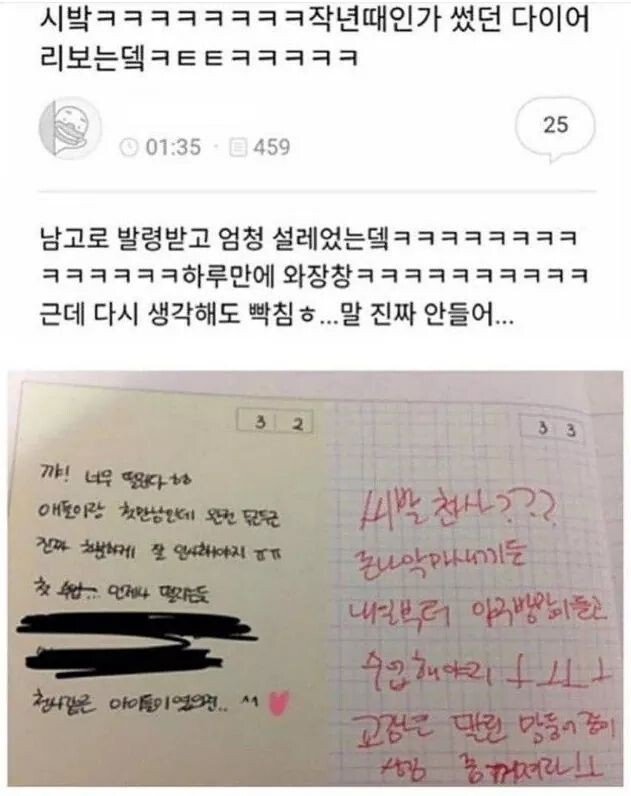 시밬ㅋㅋㅋㅋㅋㅋㅋㅋ작년때인가 썼던 다이어
리보는뎈ㅋㅌㅌㅋㅋㅋㅋㅋ
01:35 · 459
25
남고로 발령받고 엄청 설레었는뎈ㅋㅋㅋㅋㅋㅋㅋㅋ
ㅋㅋㅋㅋㅋㅋ하루만에 와장창ㅋㅋㅋㅋㅋㅋㅋㅋㅋㅋ
근데 다시 생각해도 빡침ㅎ...말 진짜 안들어...
3 2
꺄! 너무 떨린다ㅎㅎ
애들이랑 첫만남인데 완전 두근두근
진짜 잘 인사해야지 ㅠㅠ
첫 수업... 언제나 떨리는듯
천사같은 아이들이였으면.. ^^
3 3
씨발 천사???
존나악마새끼들
내일부터 야구방망이들고
수업해야지
달린 망둥어